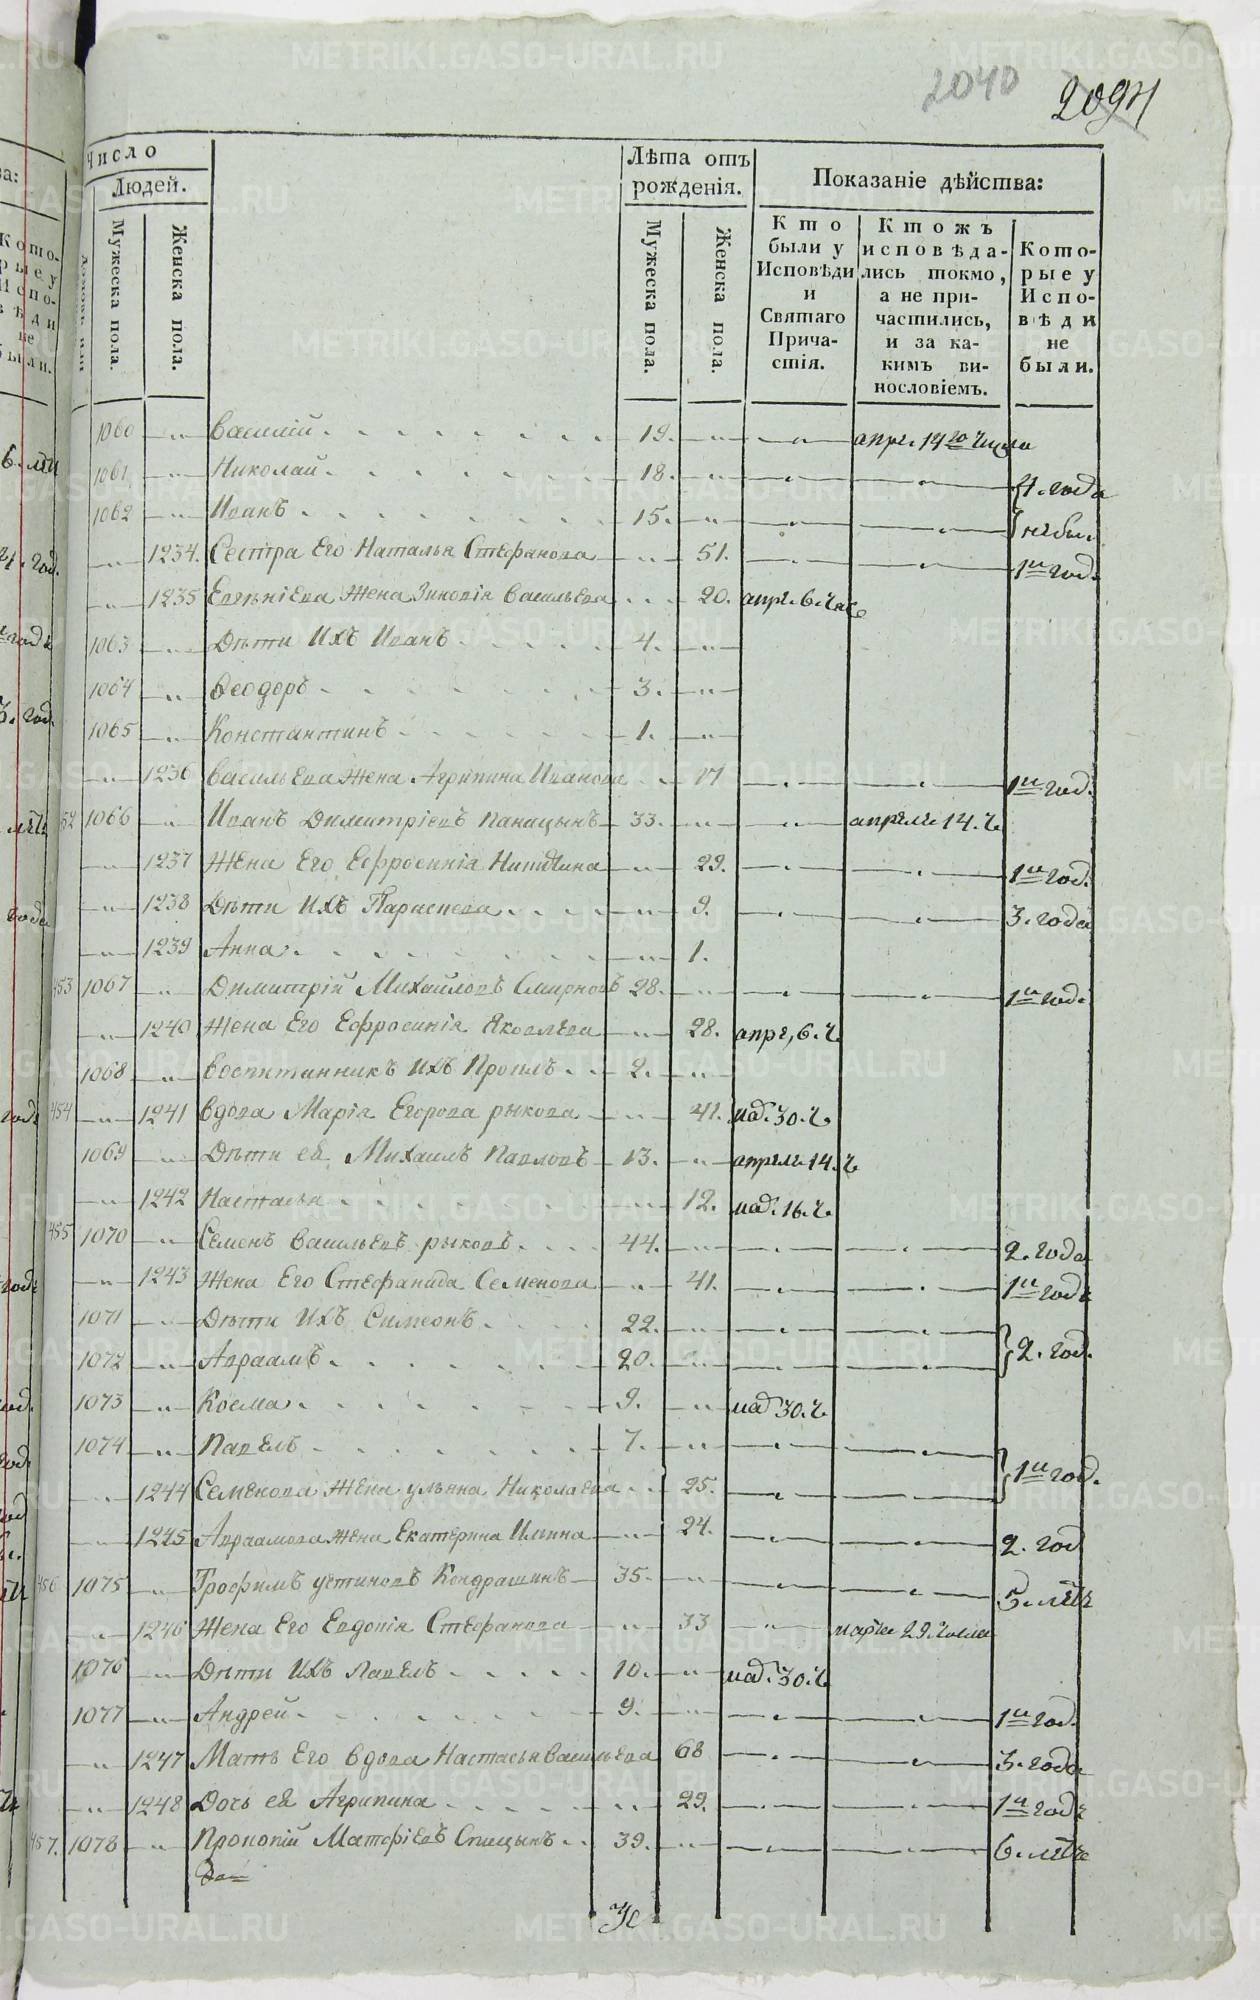 2040 2094
Число
Людей.
Мужеска пола.
Женска пола.
Лѣта отъ рожденія.
Мужеска пола.
Женска пола.
Показаніе дѣйства:
Кто были у Исповѣди и Святаго Прича-стія.
Ктожъ исповѣда-лись токмо, а не при-частились, и за ка-кимъ ви-нословіемъ.
Кото-рые у Испо-вѣди не были.
1060 Василій 19. апре. 14го числа
1061 Николай 18. 4. года
1062 Иванъ 15. небы.
1234. Сестра Его Наталья Стефанова 51. 1й год.
1235 Евгеніева Жена Зиновія Васильева 20. апре. 6. час
1063 Дѣти Ихъ Иванъ 4.
1064 Ѳеодоръ 3.
1065 Константинъ 1.
1236 Васильева Жена Агрипина Иванова 1й год.
52 1066 Иванъ Димитріевъ Паницынъ 33. апреля 14. ч
1237 Жена Его Ефросинія Никитина 29. 1й год.
1238 Дѣти Ихъ Параскева 9. 3. года
1239 Анна 1.
453 1067 Димитрій Михайловъ Смирновъ 28. 1й годъ
1240 Жена Его Ефросинія Яковлева 28. апре, 6. ч
1068 Воспитанникъ Ихъ Проклъ 2.
454 1241 Вдова Марія Егорова рыкова 41. мая. 30. ч.
1069 Дѣти ея Михаилъ Павловъ 13. апреля 14. ч
1242 Настасья 12. мая. 16. ч.
455 1070 Семенъ Васильевъ рыковъ 44. 2. года
1243 Жена Его Стефанида Семенова 41. 1й годъ
1071 Дѣти Ихъ Симеонъ 22. 2. год.
1072 Авраамъ 20.
1073 Косма 9. мая 30. ч.
1074 Павелъ 7. 1й год.
1244 Семенова Жена ульяна Николаева 25.
1245 Авраамова жена Екатерина Ильина 24. 2. год
456 1075 Трофимъ устиновъ Кондрашинъ 35. 5. лѣтъ
1246 Жена Его Евдокія Стефанова 33 марта 29. числа
1076 Дѣти Ихъ Павелъ 10. мая. 30. ч
1077 Андрей 9. 1й год.
1247 Мать Его Вдова Настасья Васильева 68 3. года
1248 Дочь ея Агрипина 29. 1й годъ
457. 1078 Прокопій Матфіевъ Спицынъ 39. 6. лѣтъ